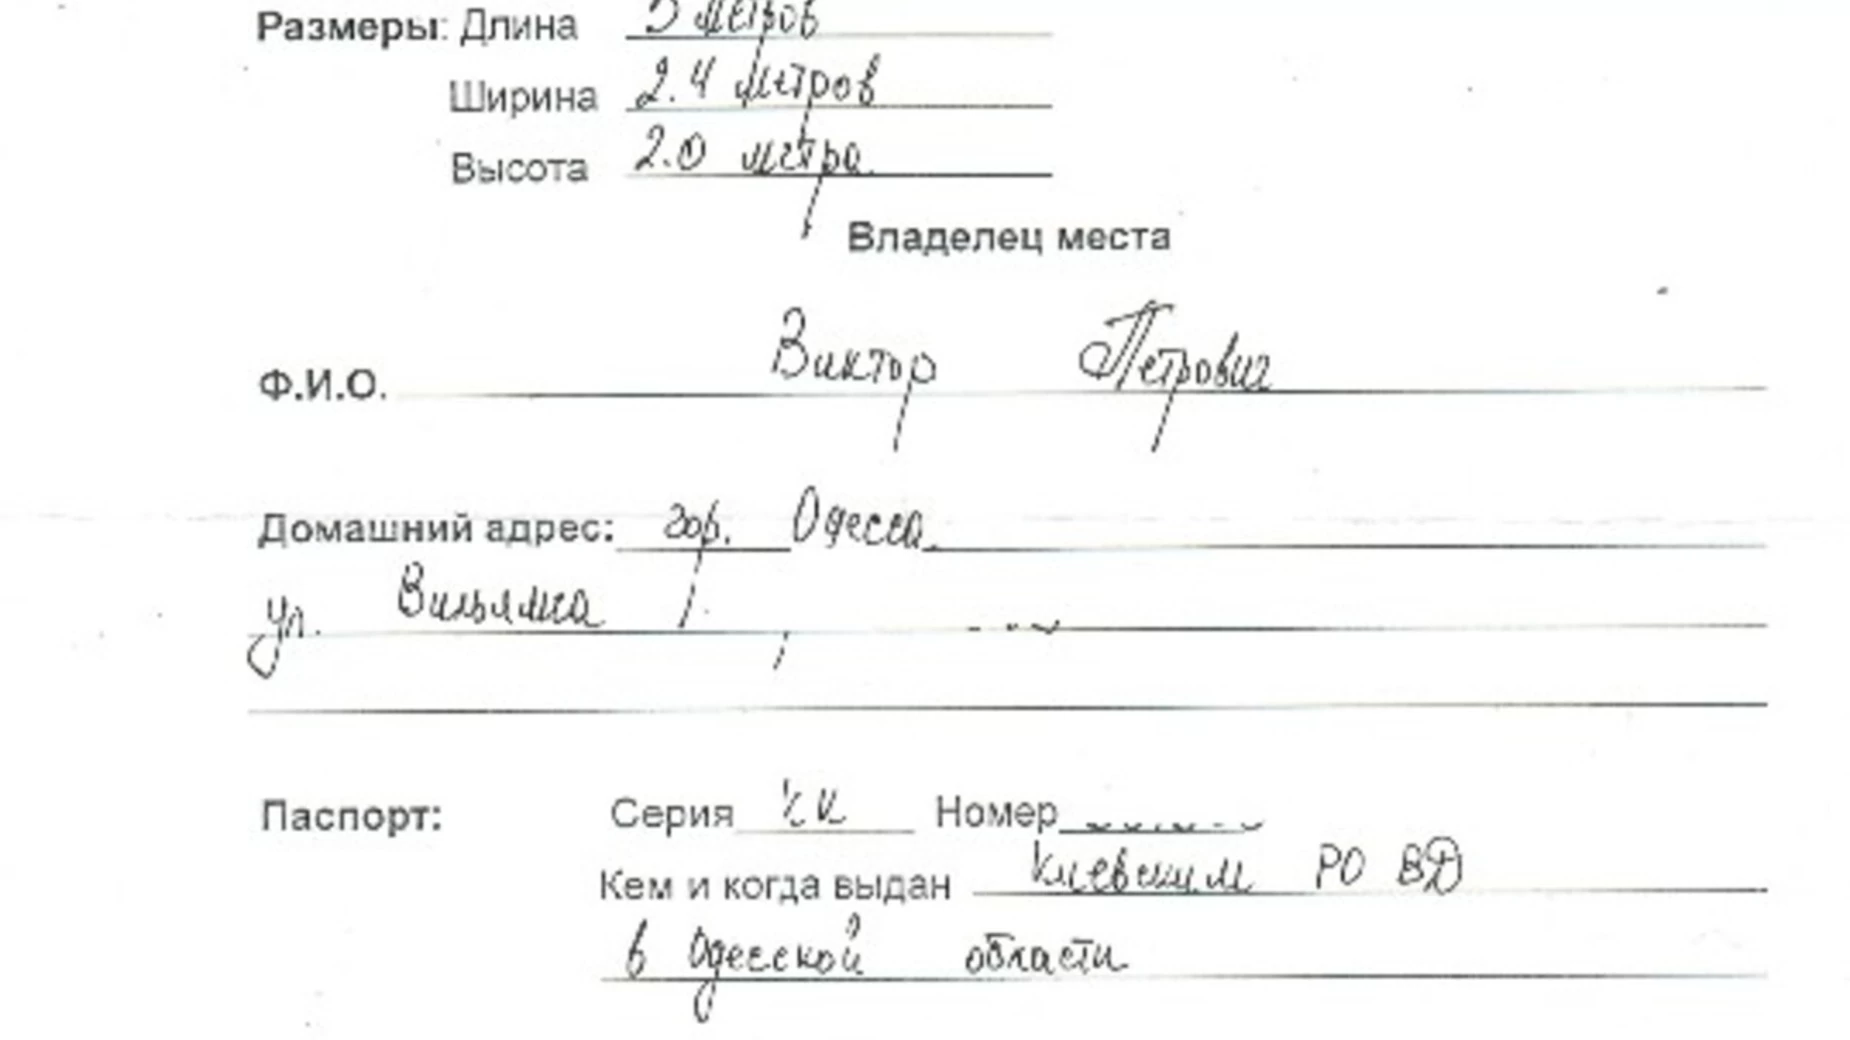 Размеры: Длина 5 метров
Ширина 2.4 метров
Высота 2.0 метра
Владелец места
Ф.И.О. Виктор Петрович
Домашний адрес: гор. Одесса
ул. Вильямса
Паспорт: Серия КК Номер
Кем и когда выдан Киевским РО ВД
в Одесской области